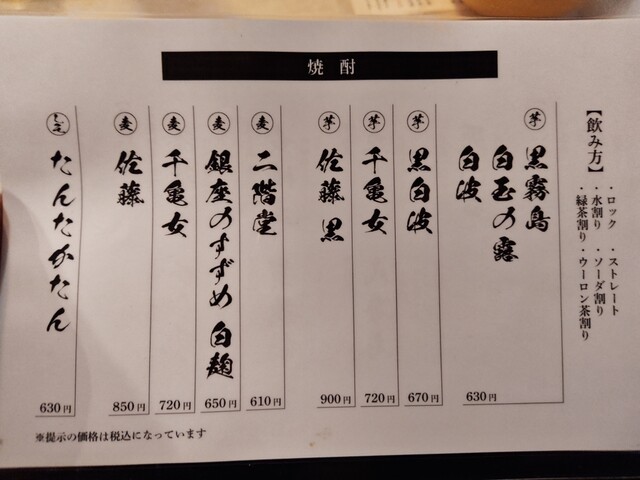 焼酎
【飲み方】
・ロック ・ストレート
・水割り ・ソーダ割り
・緑茶割り ・ウーロン茶割り
芋 黒霧島
白玉の露
白波
630円
芋 黒白波 670円
芋 千亀女 720円
芋 佐藤 黒 900円
麦 二階堂 610円
麦 銀座のすずめ 白麹 650円
麦 千亀女 720円
麦 佐藤 850円
しそ たんたかたん 630円
※提示の価格は税込になっています